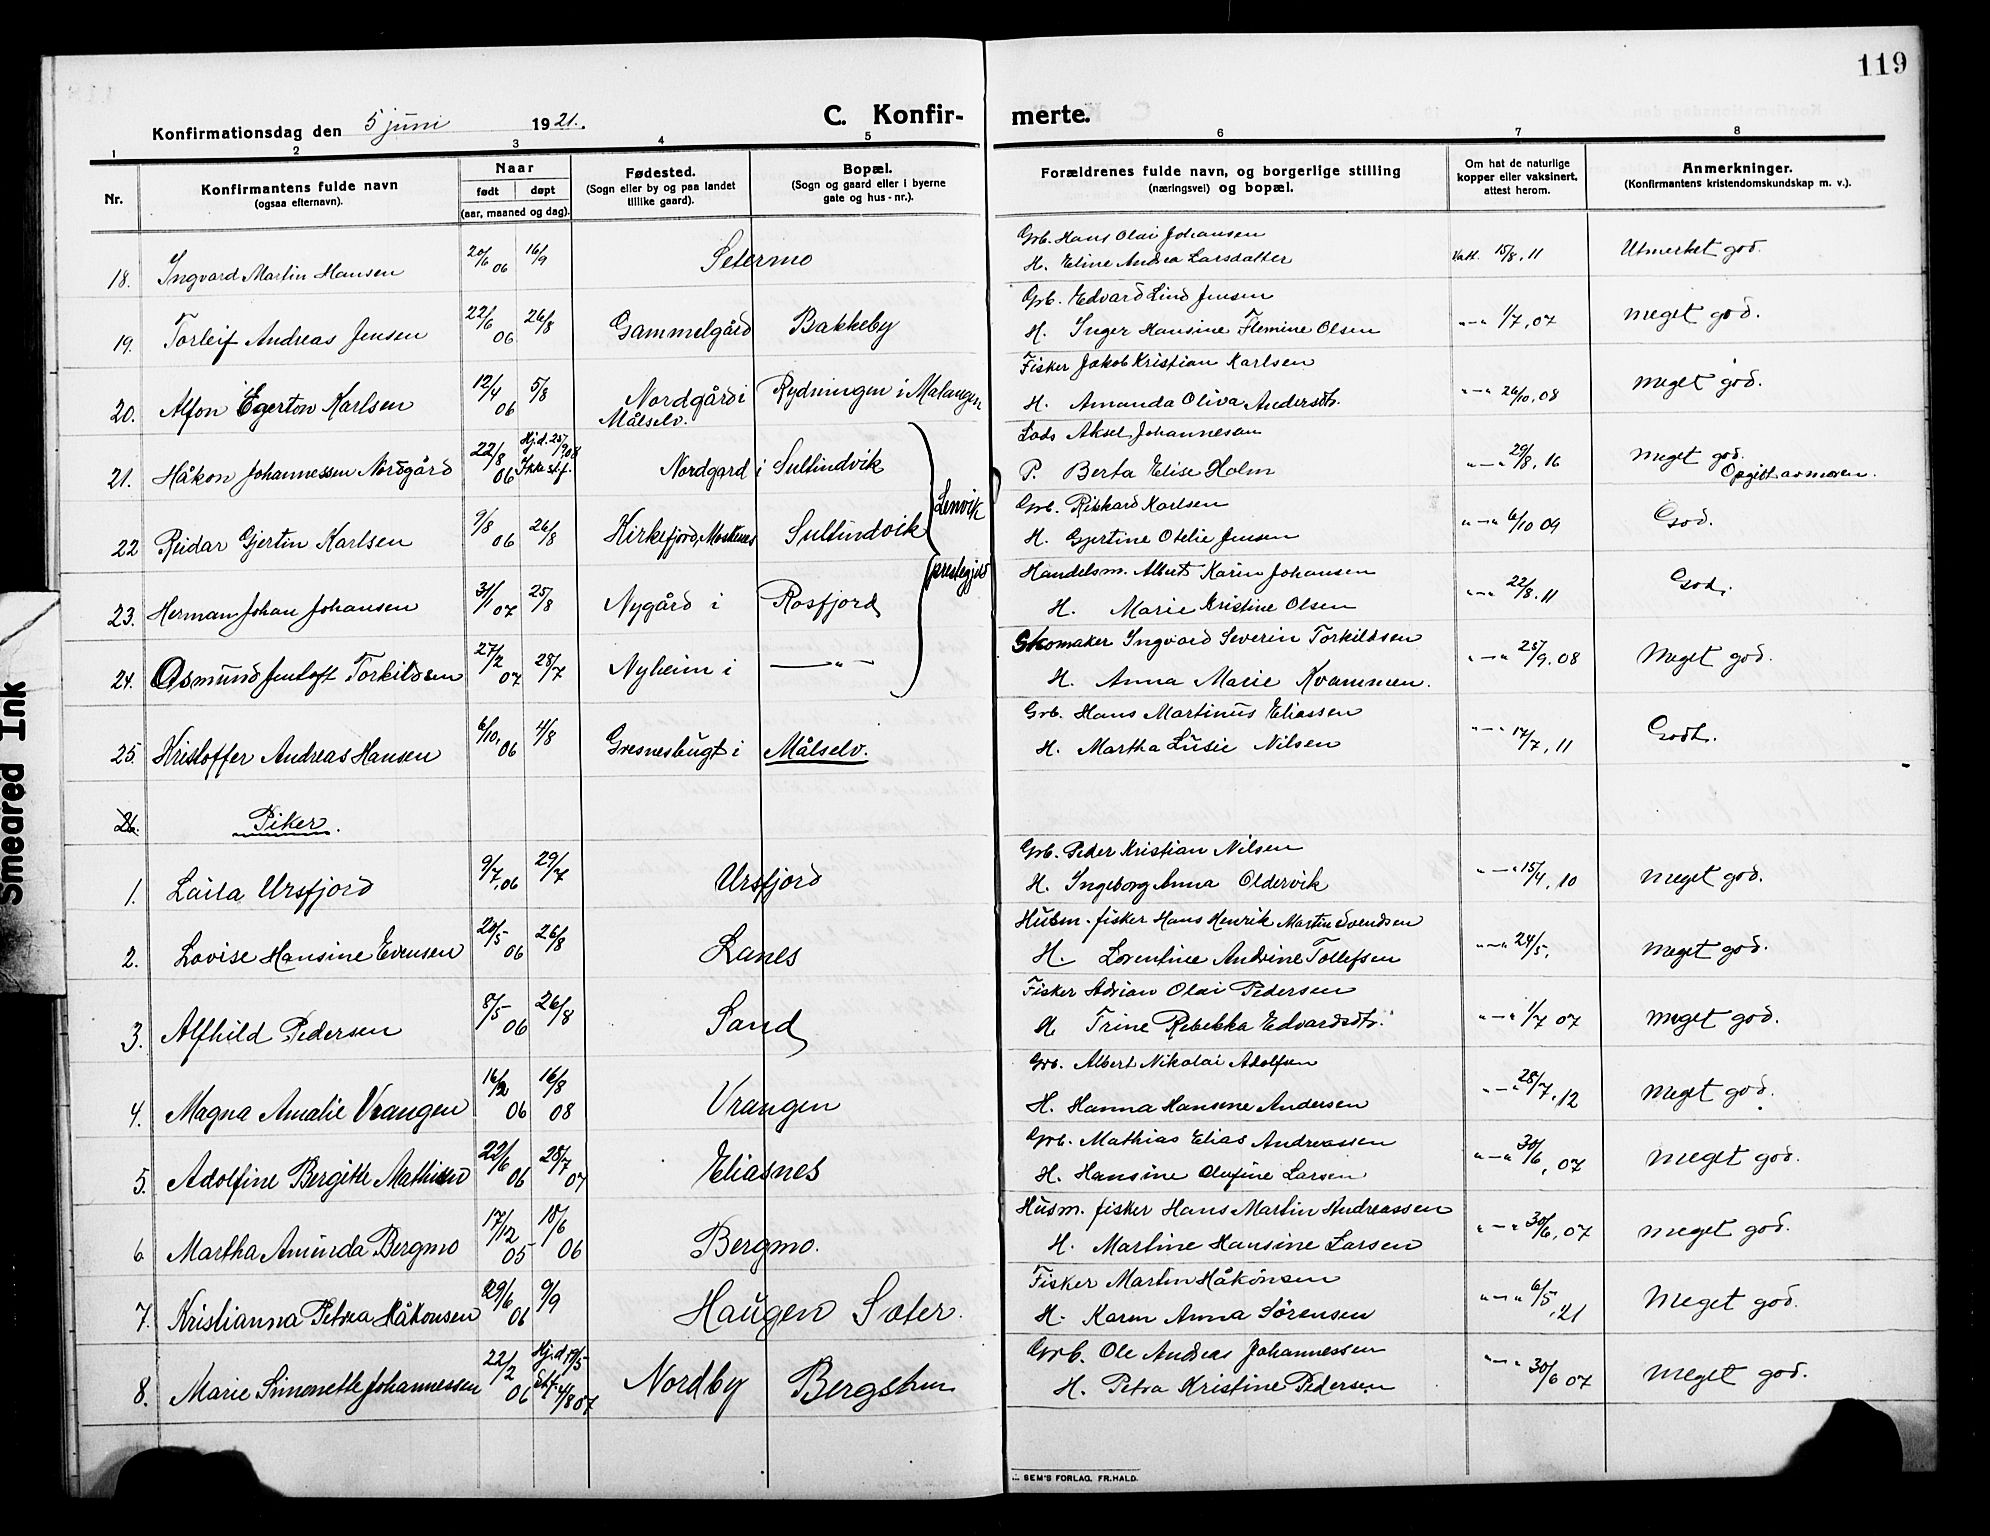 119
Konfirmationsdag den 5 juni 1921.
C. Konfir-merte.
1 2 3 4 5 6 7 8
Nr.
Konfirmantens fulde navn
(ogsaa efternavn).
Naar
født døpt
(aar, maaned og dag).
Fødested.
(Sogn eller by og paa landet
tillike gaard).
Bopæl.
(Sogn og gaard eller i byerne
gate og hus-nr.).
Forældrenes fulde navn, og borgerlige stilling
(næringsvei) og bopæl.
Om hat de naturlige
kopper eller vaksinert,
attest herom.
Anmerkninger.
(Konfirmantens kristendomskundskap m. v.).
Grb. Hans Olai Johansen
18. Ingvard Martin Hansen 20/6 06 16/9 Setermo H. Eline Andrea Larsdatter Vatt. 15/8, 11 Utmerket god.
Grb. Edvard Lind Jensen
19. Torleif Andreas Jensen 22/6 06 26/8 Gammelgård Bakkeby H. Inger Hansine Flemine Olsen -"- 1/7, 07 Meget god.
Fisker Jakob Kristian Karlsen
20. Alfon Egerton Karlsen 12/4 06 5/8 Nordgård i Målselv. Rydningen i Malangen H. Amanda Oliva Andersdtr. -"- 26/10, 08 Meget god.
Lods Aksel Johannesen
21. Håkon Johannessen Nordgård 22/8 06 Hj.d. 25/9 08 Ikke st.f. Nordgard i Sultindvik P. Berta Elise Holm -"- 29/8, 16 Meget god. Opgitt av moren.
Lenvik prestegjeld
Grb. Rikhard Karlsen
22 Reidar Gjertin Karlsen 9/8 06 26/8 Kirkefjord, Moskenes Sultindvik H. Gjertine Otelie Jensen -"- 6/10 09 God.
Handelsm. Albert Karin Johansen
23. Herman Johan Johansen 31/1 07 25/8 Nygård i Rosfjord H. Marie Kristine Olsen -"- 22/8, 11 God.
Skomaker Ingvard Severin Torkildsen
24. Osmund Jentoft Torkildsen 27/2 07 28/7 Nyheim i -"- H. Anna Marie Kvammen. -"- 25/9. 08 Meget god.
Grb. Hans Martinus Eliassen
25. Kristoffer Andreas Hansen 6/10, 06 4/8 Gresnesbugt i Målselv. H. Martha Lusie Nilsen -"- 17/7, 11 Godt.
26. Piker.
Grb. Peder Kristian Nilsen
1. Laila Ursfjord 9/7, 06 29/7 Ursfjord H. Ingeborg Anna Oldervik -"- 15/4, 10 Meget god.
Husm. fisker Hans Henrik Martin Evendsen
2. Lovise Hansine Evensen 20/5 06 26/8 Lanes H. Lorentine Andrine Tollefsen -"- 24/5, Meget god.
Fisker Adrian Olai Pedersen
3. Alfhild Pedersen 8/5 06 26/8 Sand H Trine Rebekka Edvardsdtr. -"- 1/7 07 Meget god.
Grb. Albert Nikolai Adolfsen
4. Magna Amalie Vrangen 16/2 06 16/8 08 Vrangen H. Hanna Hansene Andersen -"- 28/7, 12 Meget god.
Grb. Mathias Elias Andreassen
5. Adolfine Bergitte Mathisen 22/6 06 28/7 07 Eliasnes H. Hansine Olufine Larsen -"- 30/6, 07 Meget god.
Husm. fisker Hans Martin Andreassen
6 Martha Aminda Bergmo 17/12 05 10/6 06 Bergmo. H. Martine Hansine Larsen -"- 30/6, 07 Meget god.
Fisker Martin Håkonsen
7. Kristianna Petrea Håkonsen 29/6 06 9/9 Haugen Sæter. H. Karen Anna Sörensen -"- 6/5, 21 Meget god.
Grb. Ole Andreas Johannessen
8. Marie Simonette Johannessen 22/2 06 Hj.d 19/5 St.f. 4/8 07 Nordby H. Petra Kristine Pedersen -"- 30/6 07 Meget god.
SEM'S FORLAG, FR.HALD.
Smeared Ink